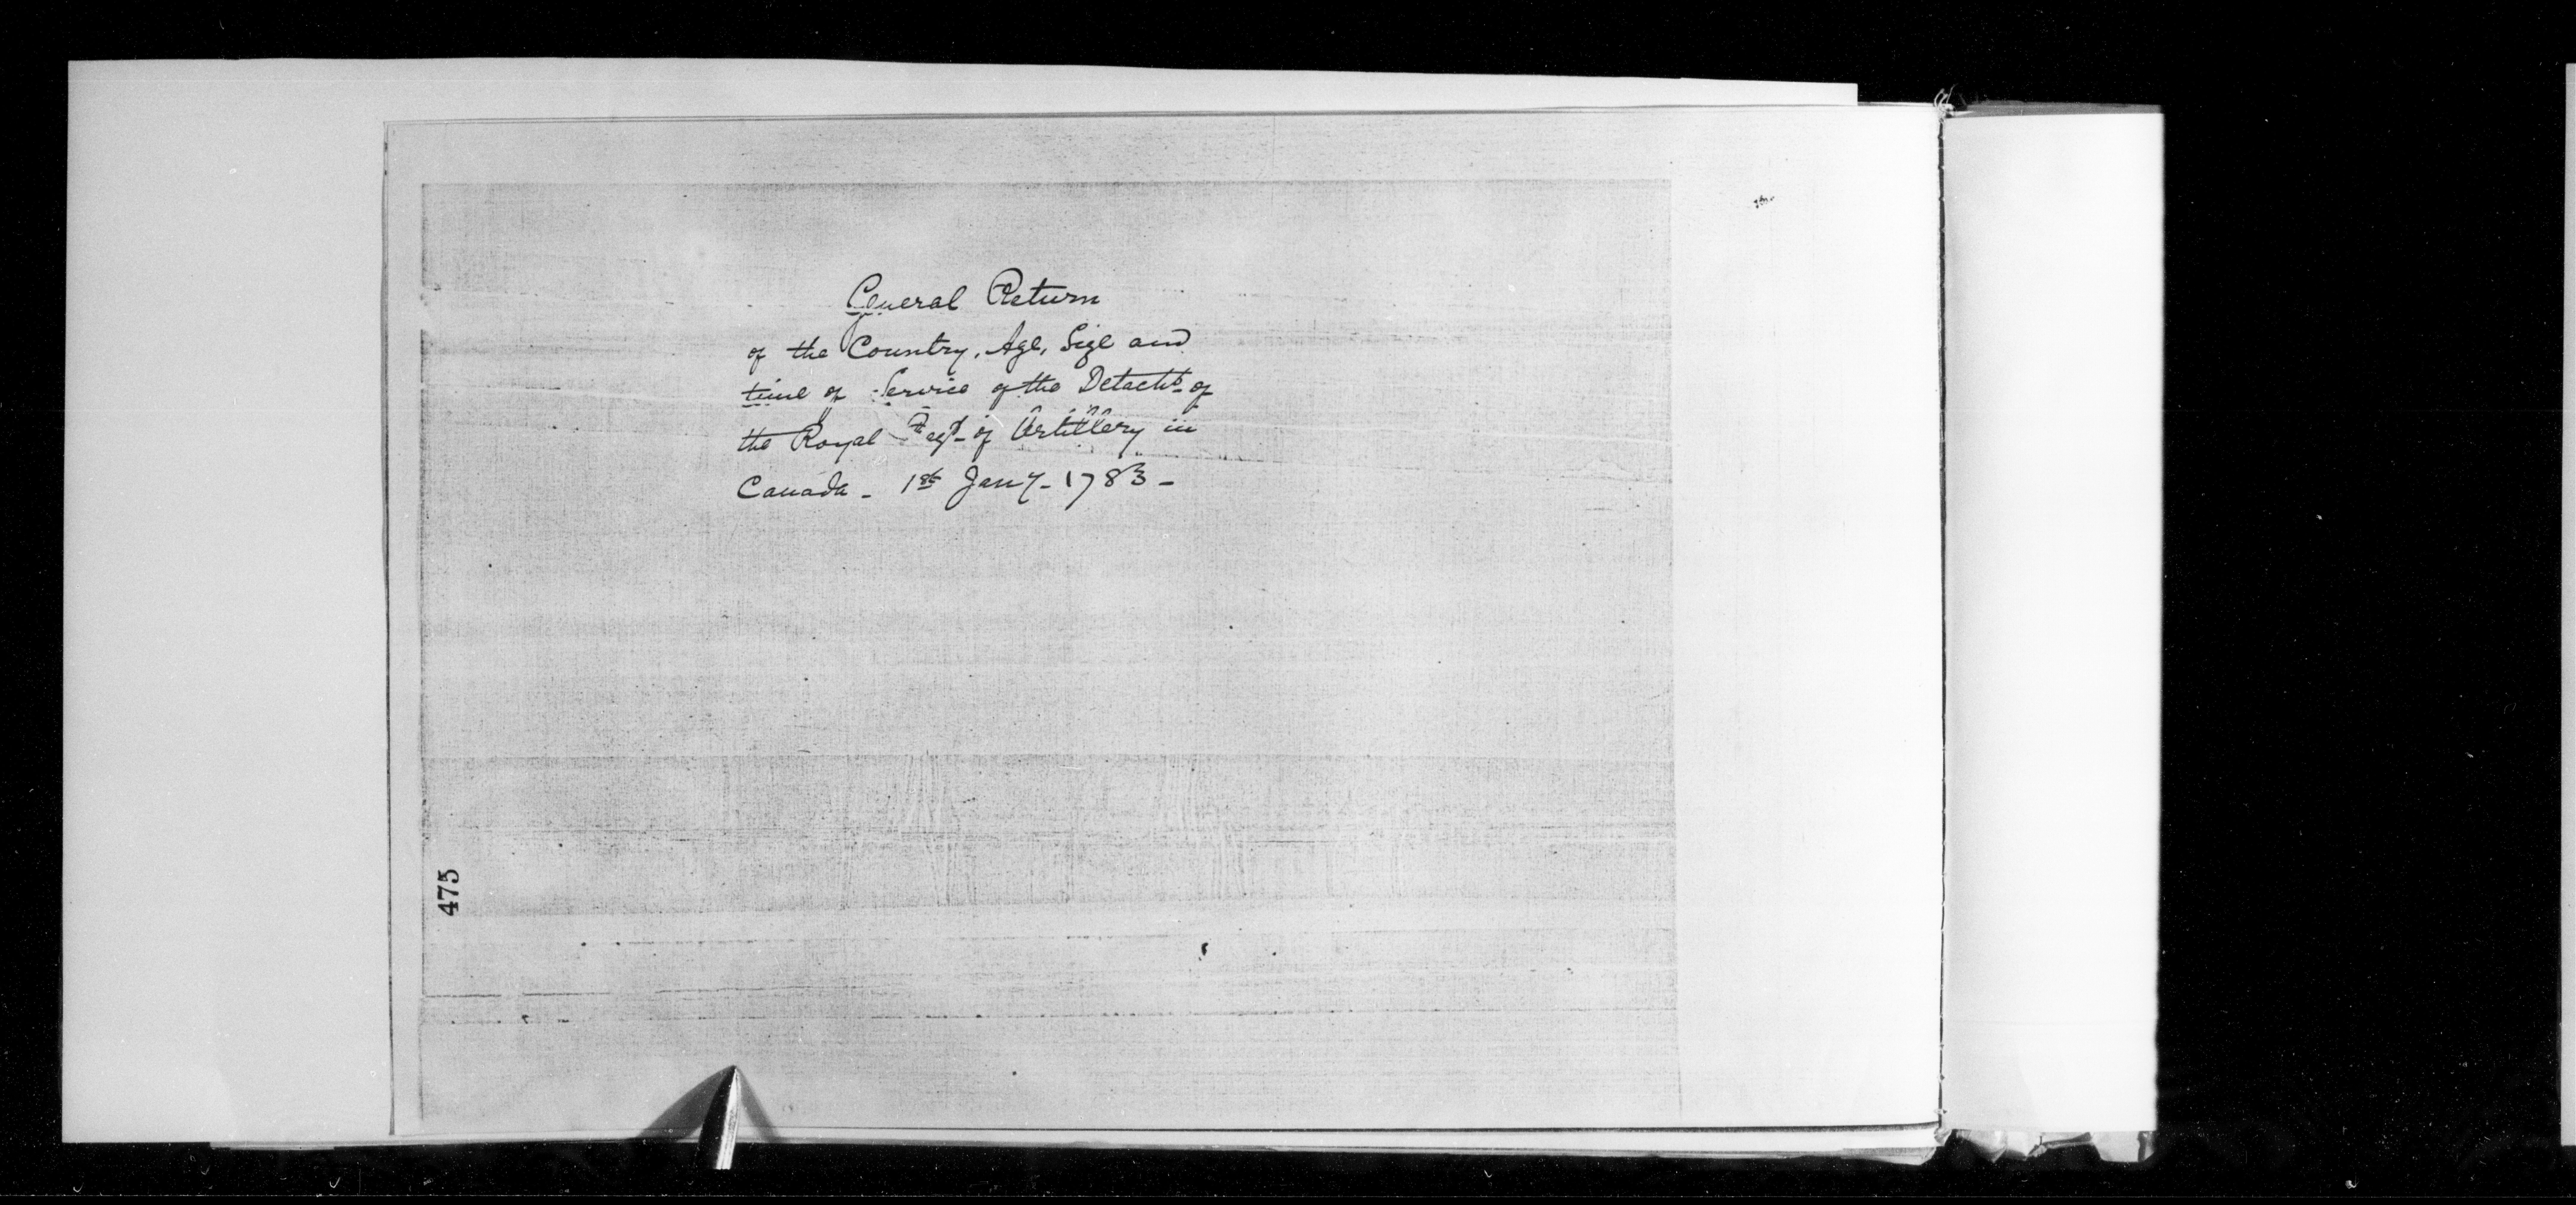 General Return
of the Country, Age, Size and
time of Service of the Detacht. of
the Royal Regt. of Artillery in
Canada - 1st Jany - 1783 -
475